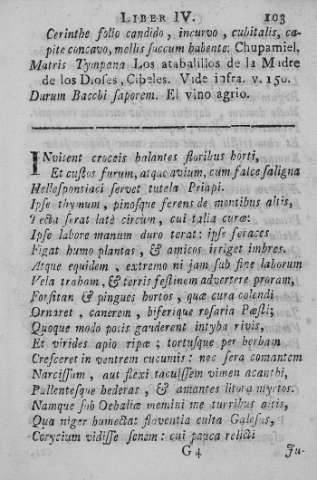 LIBER IV. 103
Cerinthe follo candido, incurvo, cubitalis, ca-
pite concavo, mellis succum habente: Chupamiel,
Matris Tympana Los atabalillos de la Madre
de los Dioses, Cibeles. Vide infra. v. 150.
Durum Bacchi saporem. El vino agrio.
INvitent croceis halantes floribus horti,
Et custos furum, atque avium, cum falce saligna
Hellesponsiaci servet tutela Priapi.
Ipse thymum, pinosque ferens de montibus altis,
Tecta serat latè circum, cui talia curæ:
Ipse labore manum duro terat: ipse feraces
Figat humo plantas, & amicos irriget imbres.
Atque equidem, extremo ni jam sub fine laborum
Vela traham, & terris festinem advertere proram,
Forsitan & pingues hortos, quæ cura colendi
Ornaret, canerem, biferique rosaria Pæsti;
Quoque modo potis gauderent intyba rivis,
Et virides apio ripæ; tortusque per herbam
Cresceret in ventrem cucumis: nec sera comantem
Narcissum, aut flexi tacuissem vimen acanthi,
Pallentesque hederas, & amantes litora myrtos.
Namque sub Oebaliæ memini me turribus altis,
Qua niger humectat flaventia culta Galesus,
Corycium vidisse senem: cui pauca relicti
G 4 Ju-